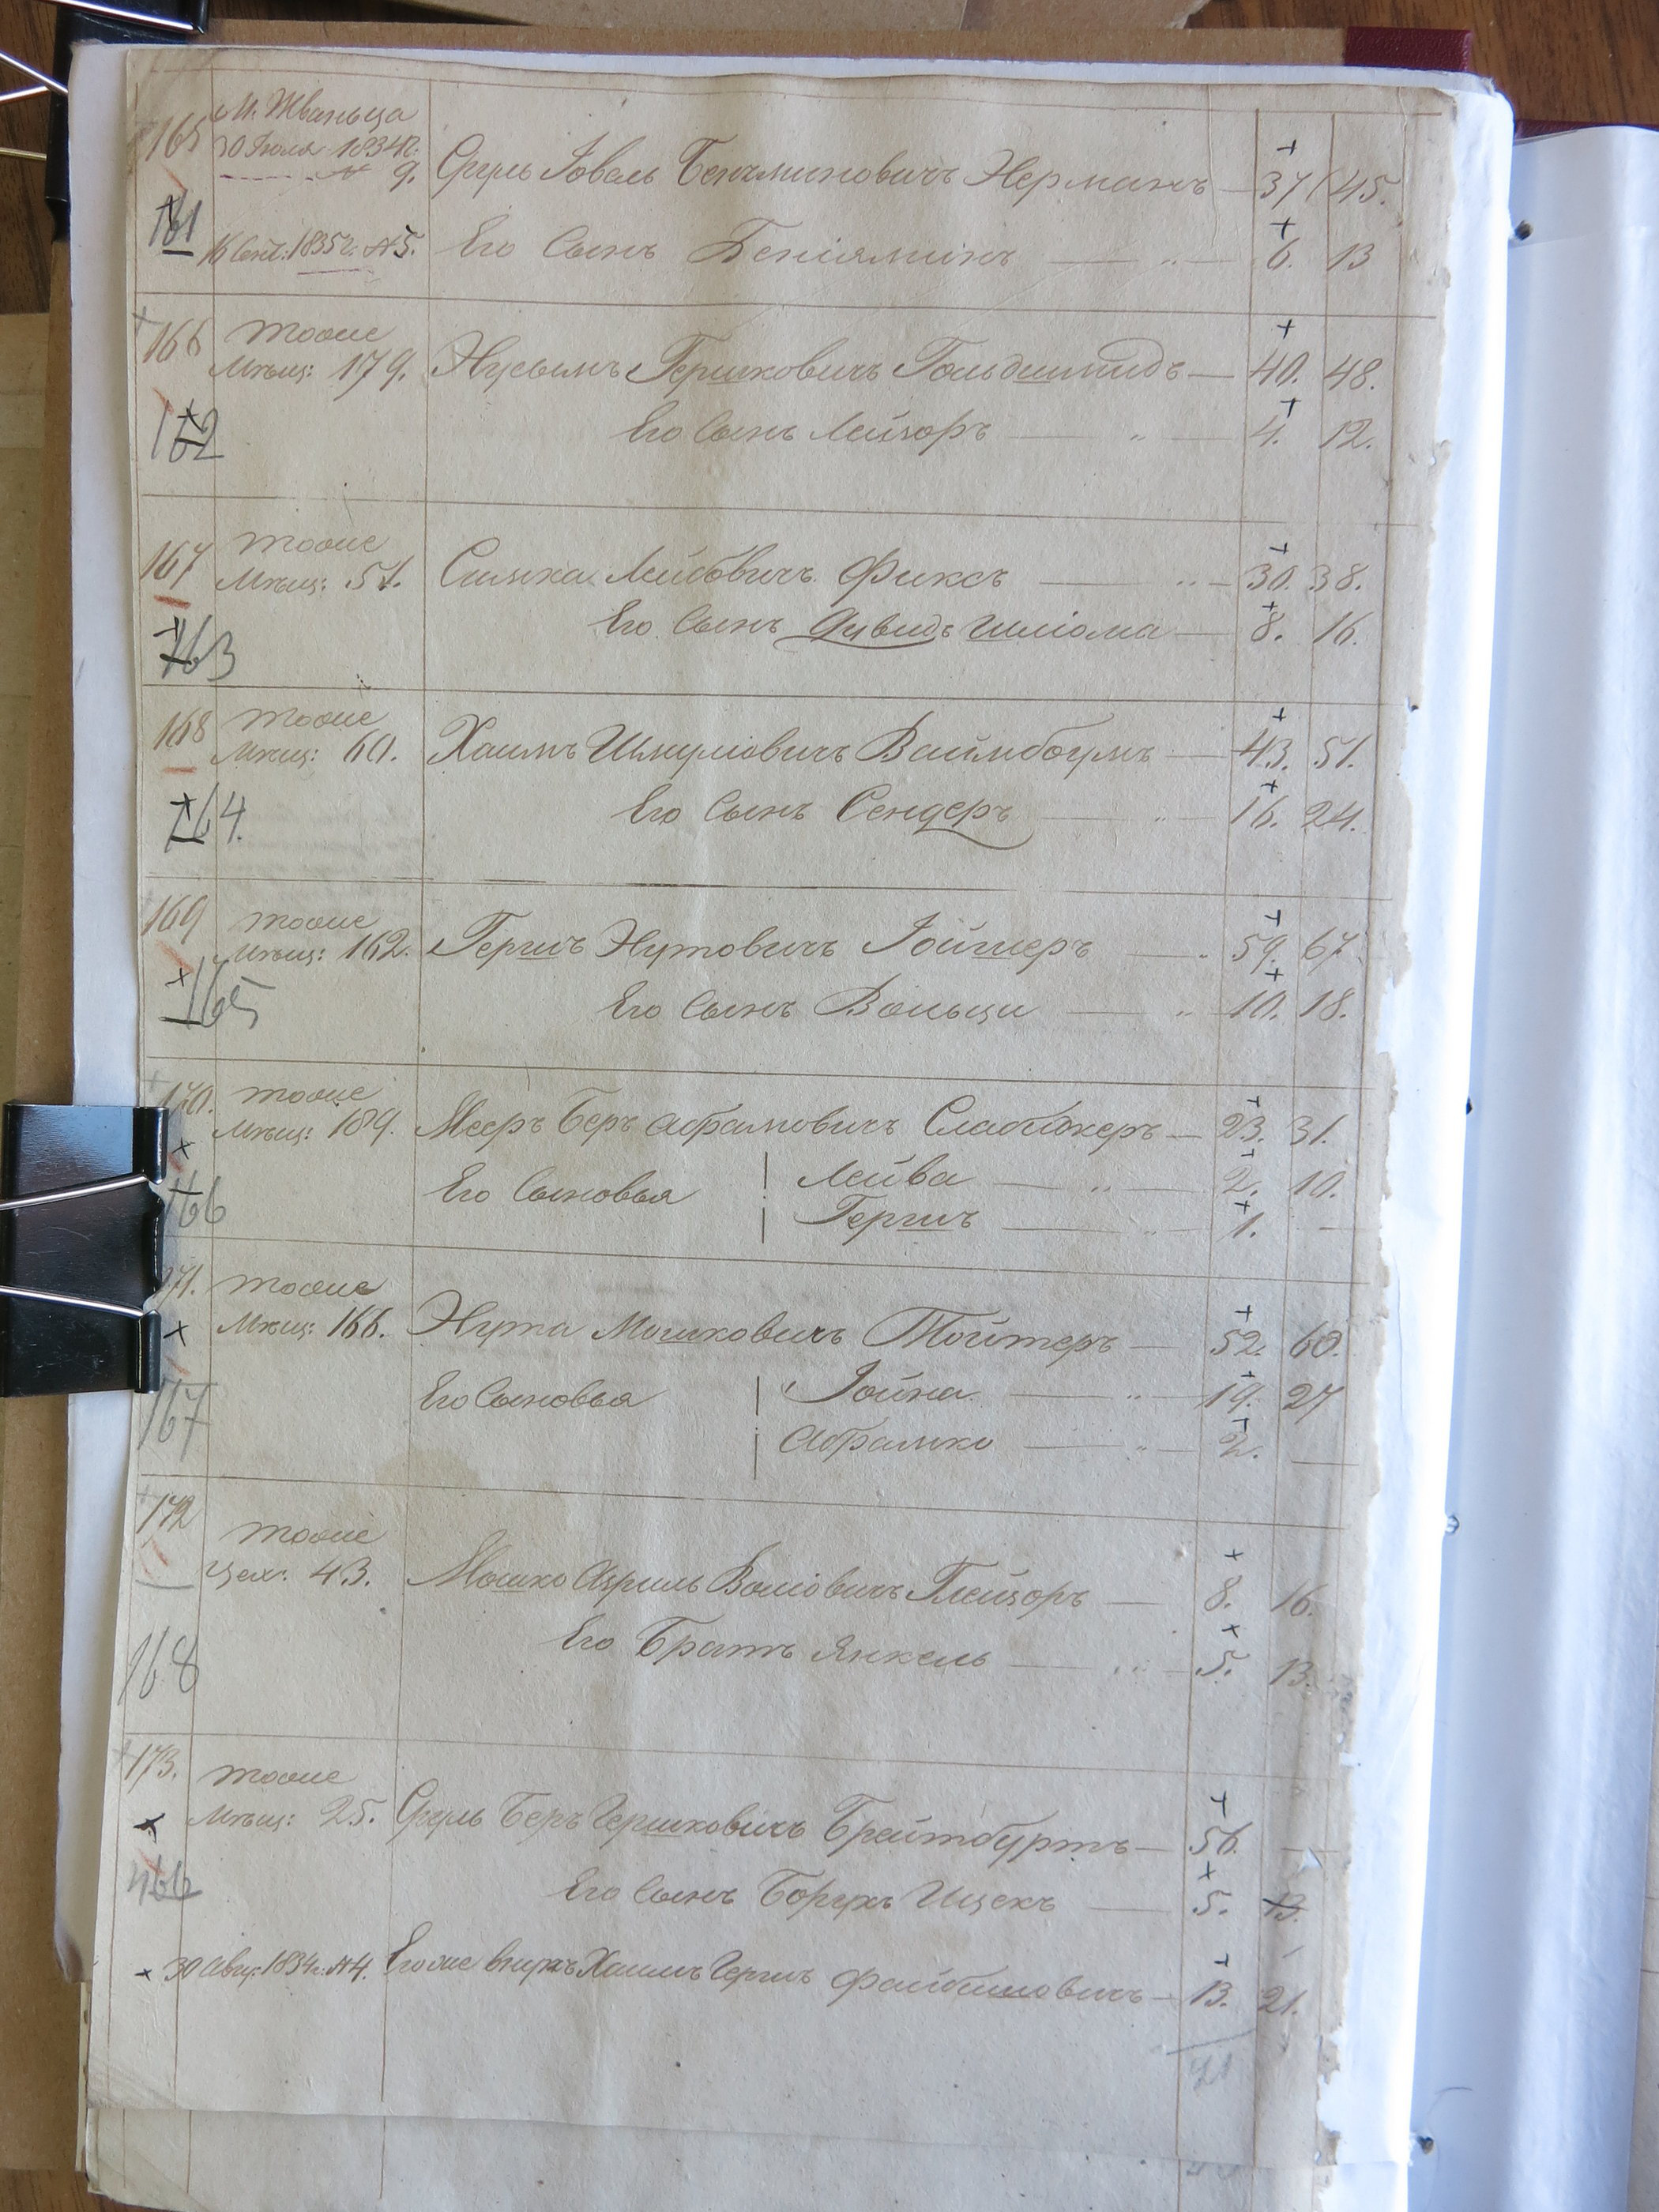 165 М. Жванца
30 Іюля 1834 г.
№ 9. Сруль Іовель Беньминовичъ Нерманъ — 37 45.
161
16 Сент: 1835 г. №5. Его Сынъ Беніяминъ — „ — 6. 13
166 тоже
Мѣщ: 179. Нусымъ Гершковичъ Гольдшмидъ — 40. 48.
Его Сынъ Лейзоръ — „ — 4. 12.
162
167 тоже
Мѣщ: 51. Симха Лейбовичъ Фиксъ — „ — 30. 38.
Его Сынъ Дувидъ Шліома — 8. 16.
163
168 тоже
Мѣщ: 60. Хаимъ Шмуліовичъ Ваймбоумъ — 43. 51.
Его Сынъ Сендеръ — „ — 16. 24.
164.
169 тоже
Мѣщ: 162. Гершъ Нутовичъ — „ 59. 67
Его Сынъ Вольцы — „ — 10. 18.
165
170. тоже
Мѣщ: 189. Мееръ Беръ Абрамовичъ — 23. 31.
Его Сыновья Лейба — „ — 2. 10.
Гершъ — „ — 1. —
166
171. тоже
Мѣщ: 166. Нута Мошковичъ Тойтеръ — 52. 60.
Его Сыновья Іойна — „ — 19. 27
Абрамко — „ — 2. —
167
172 тоже
Цех: 43. Мошко Азриль Воліовичъ Глейзоръ — 8. 16.
Его Братъ Янкель — „ — 5. 13.
168
173. тоже
Мѣщ: 25. Сруль Беръ Гершковичъ Брейтбуртъ — 56. —
Его Сынъ Борухъ Ицекъ — 5. 13.
30 Авгу: 1834 г: №4. Его же внукъ Хаимъ Гершъ Файбишовичъ — 13. 21.
21